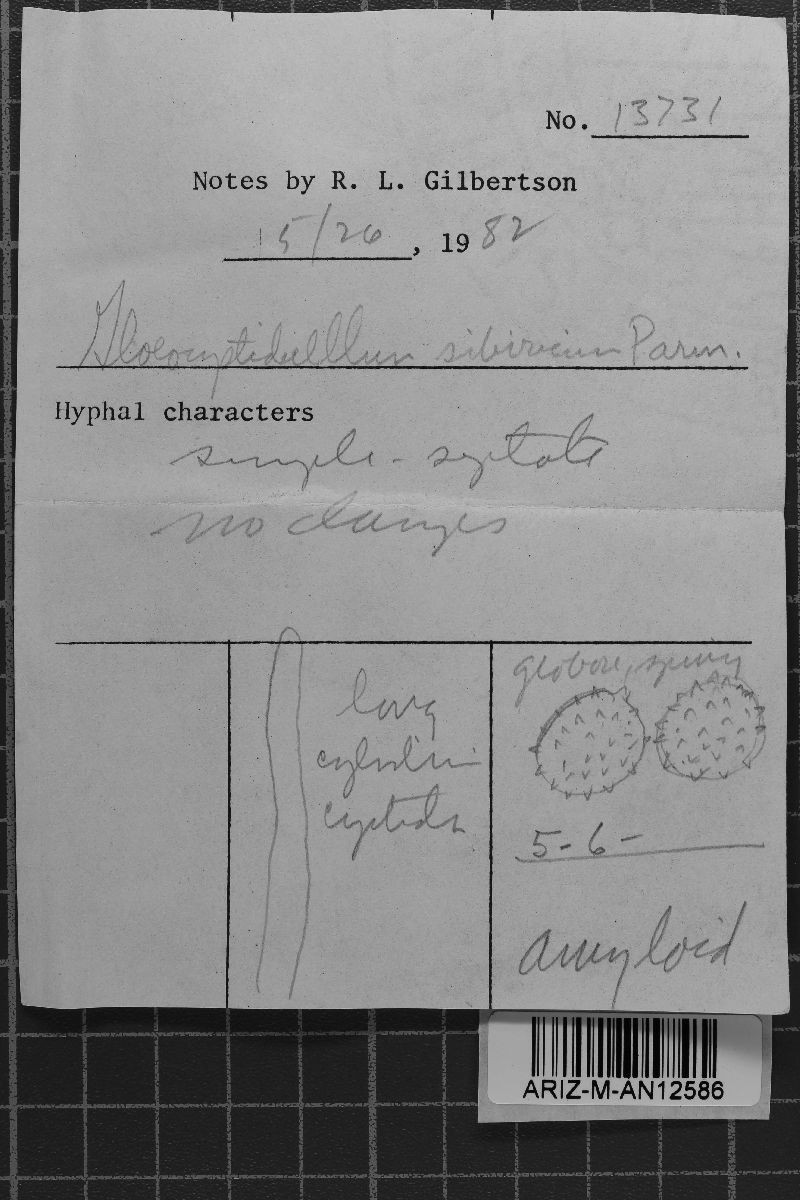 No. 13731
Notes by R. L. Gilbertson
15/26, 1982
Gloeocystidiellum sibiricum Parm.
Hyphal characters
simple-septate
no clamps
long
cylindric
cystidia
globose, spiny
5-6-
amyloid
ARIZ-M-AN12586